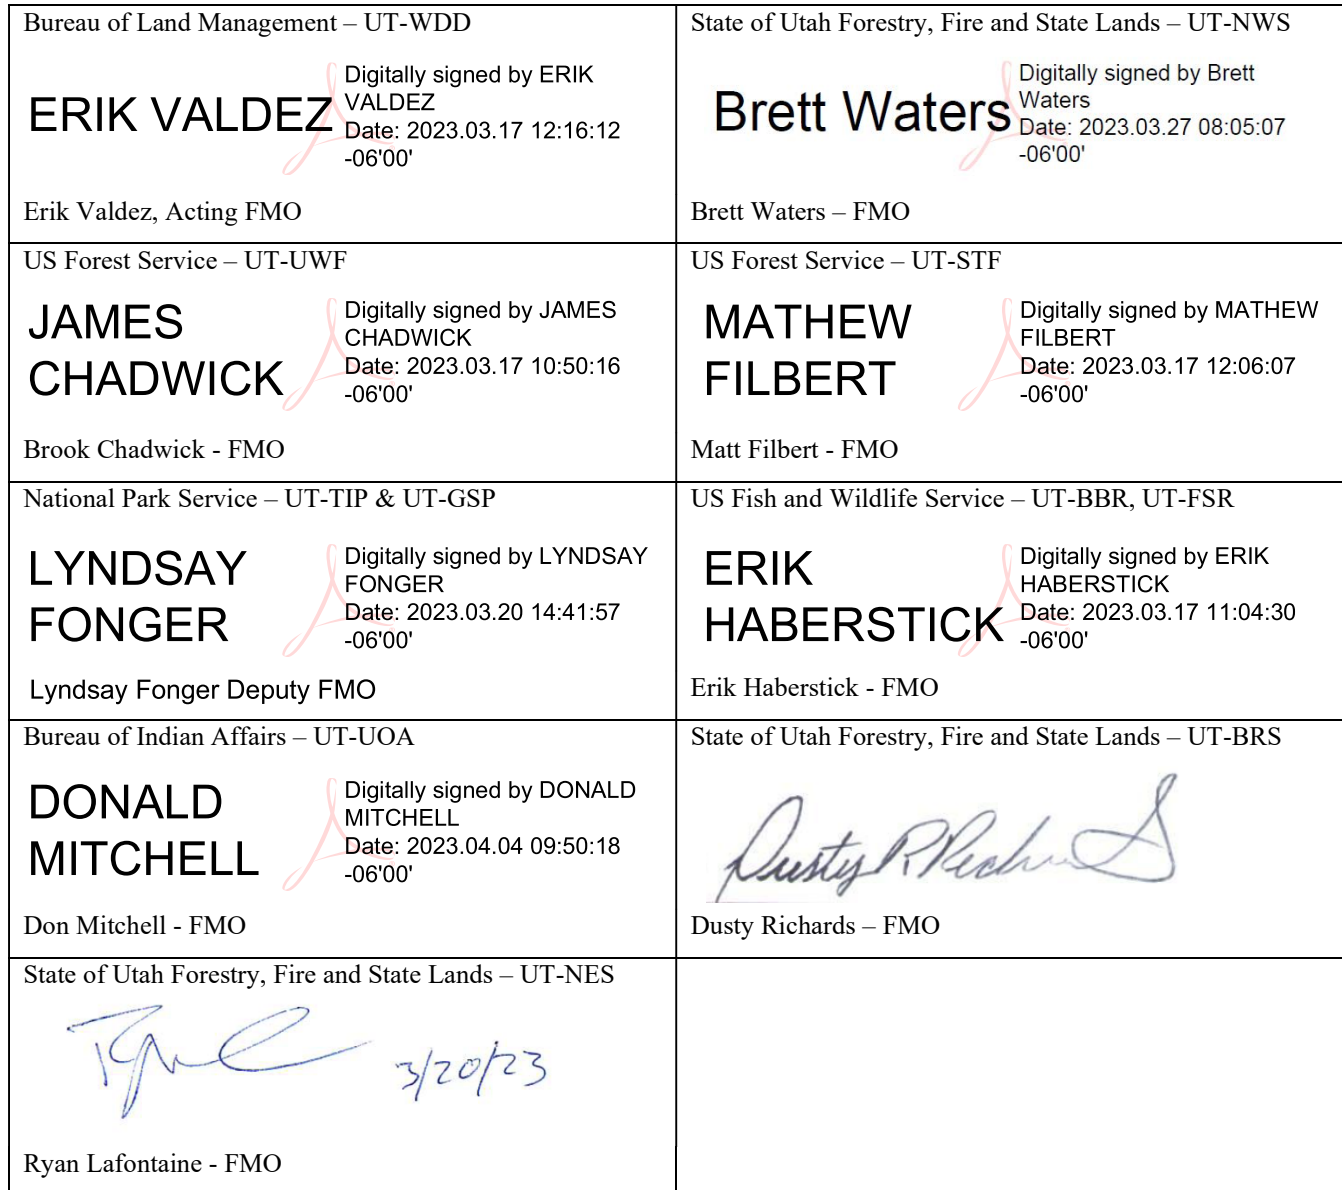 Bureau of Land Management – UT-WDD
ERIK VALDEZ
Digitally signed by ERIK
VALDEZ
Date: 2023.03.17 12:16:12
-06'00'
Erik Valdez, Acting FMO
State of Utah Forestry, Fire and State Lands – UT-NWS
Brett Waters
Digitally signed by Brett
Waters
Date: 2023.03.27 08:05:07
-06'00'
Brett Waters – FMO
US Forest Service – UT-UWF
JAMES
CHADWICK
Digitally signed by JAMES
CHADWICK
Date: 2023.03.17 10:50:16
-06'00'
Brook Chadwick - FMO
US Forest Service – UT-STF
MATHEW
FILBERT
Digitally signed by MATHEW
FILBERT
Date: 2023.03.17 12:06:07
-06'00'
Matt Filbert - FMO
National Park Service – UT-TIP & UT-GSP
LYNDSAY
FONGER
Digitally signed by LYNDSAY
FONGER
Date: 2023.03.20 14:41:57
-06'00'
Lyndsay Fonger Deputy FMO
US Fish and Wildlife Service – UT-BBR, UT-FSR
ERIK
HABERSTICK
Digitally signed by ERIK
HABERSTICK
Date: 2023.03.17 11:04:30
-06'00'
Erik Haberstick - FMO
Bureau of Indian Affairs – UT-UOA
DONALD
MITCHELL
Digitally signed by DONALD
MITCHELL
Date: 2023.04.04 09:50:18
-06'00'
Don Mitchell - FMO
State of Utah Forestry, Fire and State Lands – UT-BRS
Dusty R
Dusty Richards – FMO
State of Utah Forestry, Fire and State Lands – UT-NES
3/20/23
Ryan Lafontaine - FMO